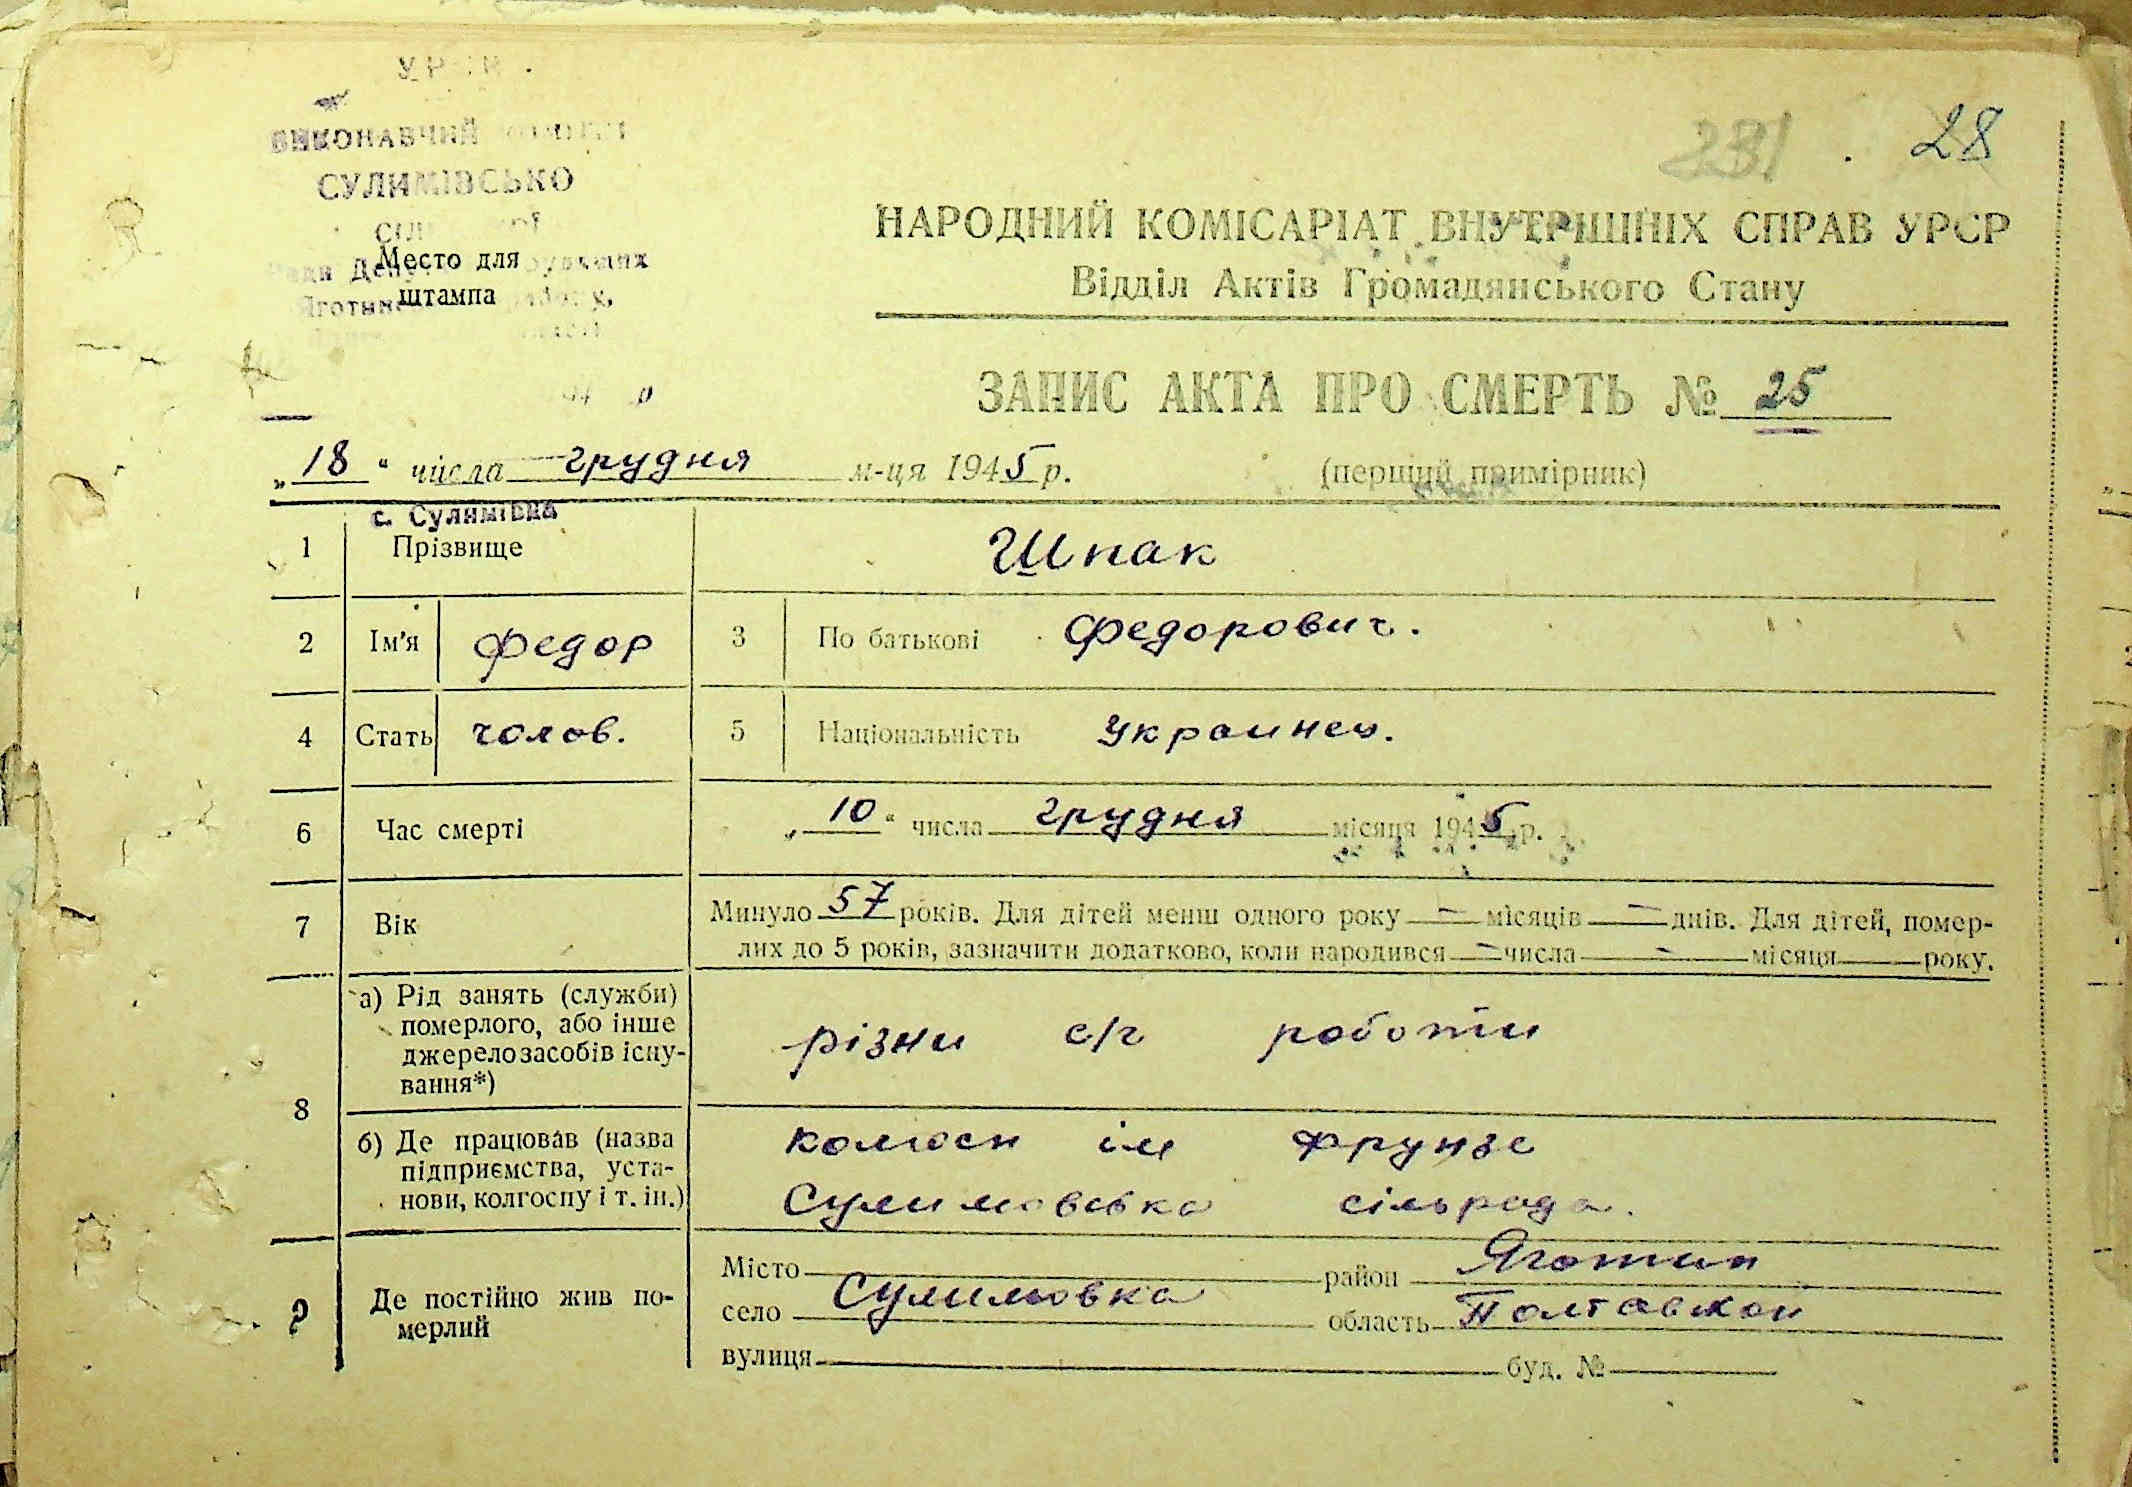 ВИКОНАВЧИЙ
СУЛИМІВСЬКО
Место для
штампа
28
НАРОДНИЙ КОМІСАРІАТ ВНУТРІШНІХ СПРАВ УРСР
Відділ Актів Громадянського Стану
ЗАПИС АКТА ПРО СМЕРТЬ № 25
„18“ числа грудня м-ця 1945 р. (перший примірник)
с. Сулимівка
1 Прізвище Шпак
2 Ім'я Федор 3 По батькові Федорович.
4 Стать чолов. 5 Національність украинец.
6 Час смерті „10“ числа грудня місяця 1945 р.
7 Вік Минуло 57 років. Для дітей менш одного року — місяців — днів. Для дітей, помер-
лих до 5 років, зазначити додатково, коли народився — числа — місяця року.
8 а) Рід занять (служби)
померлого, або інше
джерело засобів існу-
вання*)
різни с/г роботи
б) Де працював (назва
підприємства, уста-
нови, колгоспу і т. ін.)
колгосп ім Фрунзе
Сулимовська сільрада.
Де постійно жив по-
мерлий
Місто район Яготин
село Сулимовка область Полтавской
вулиця буд. №